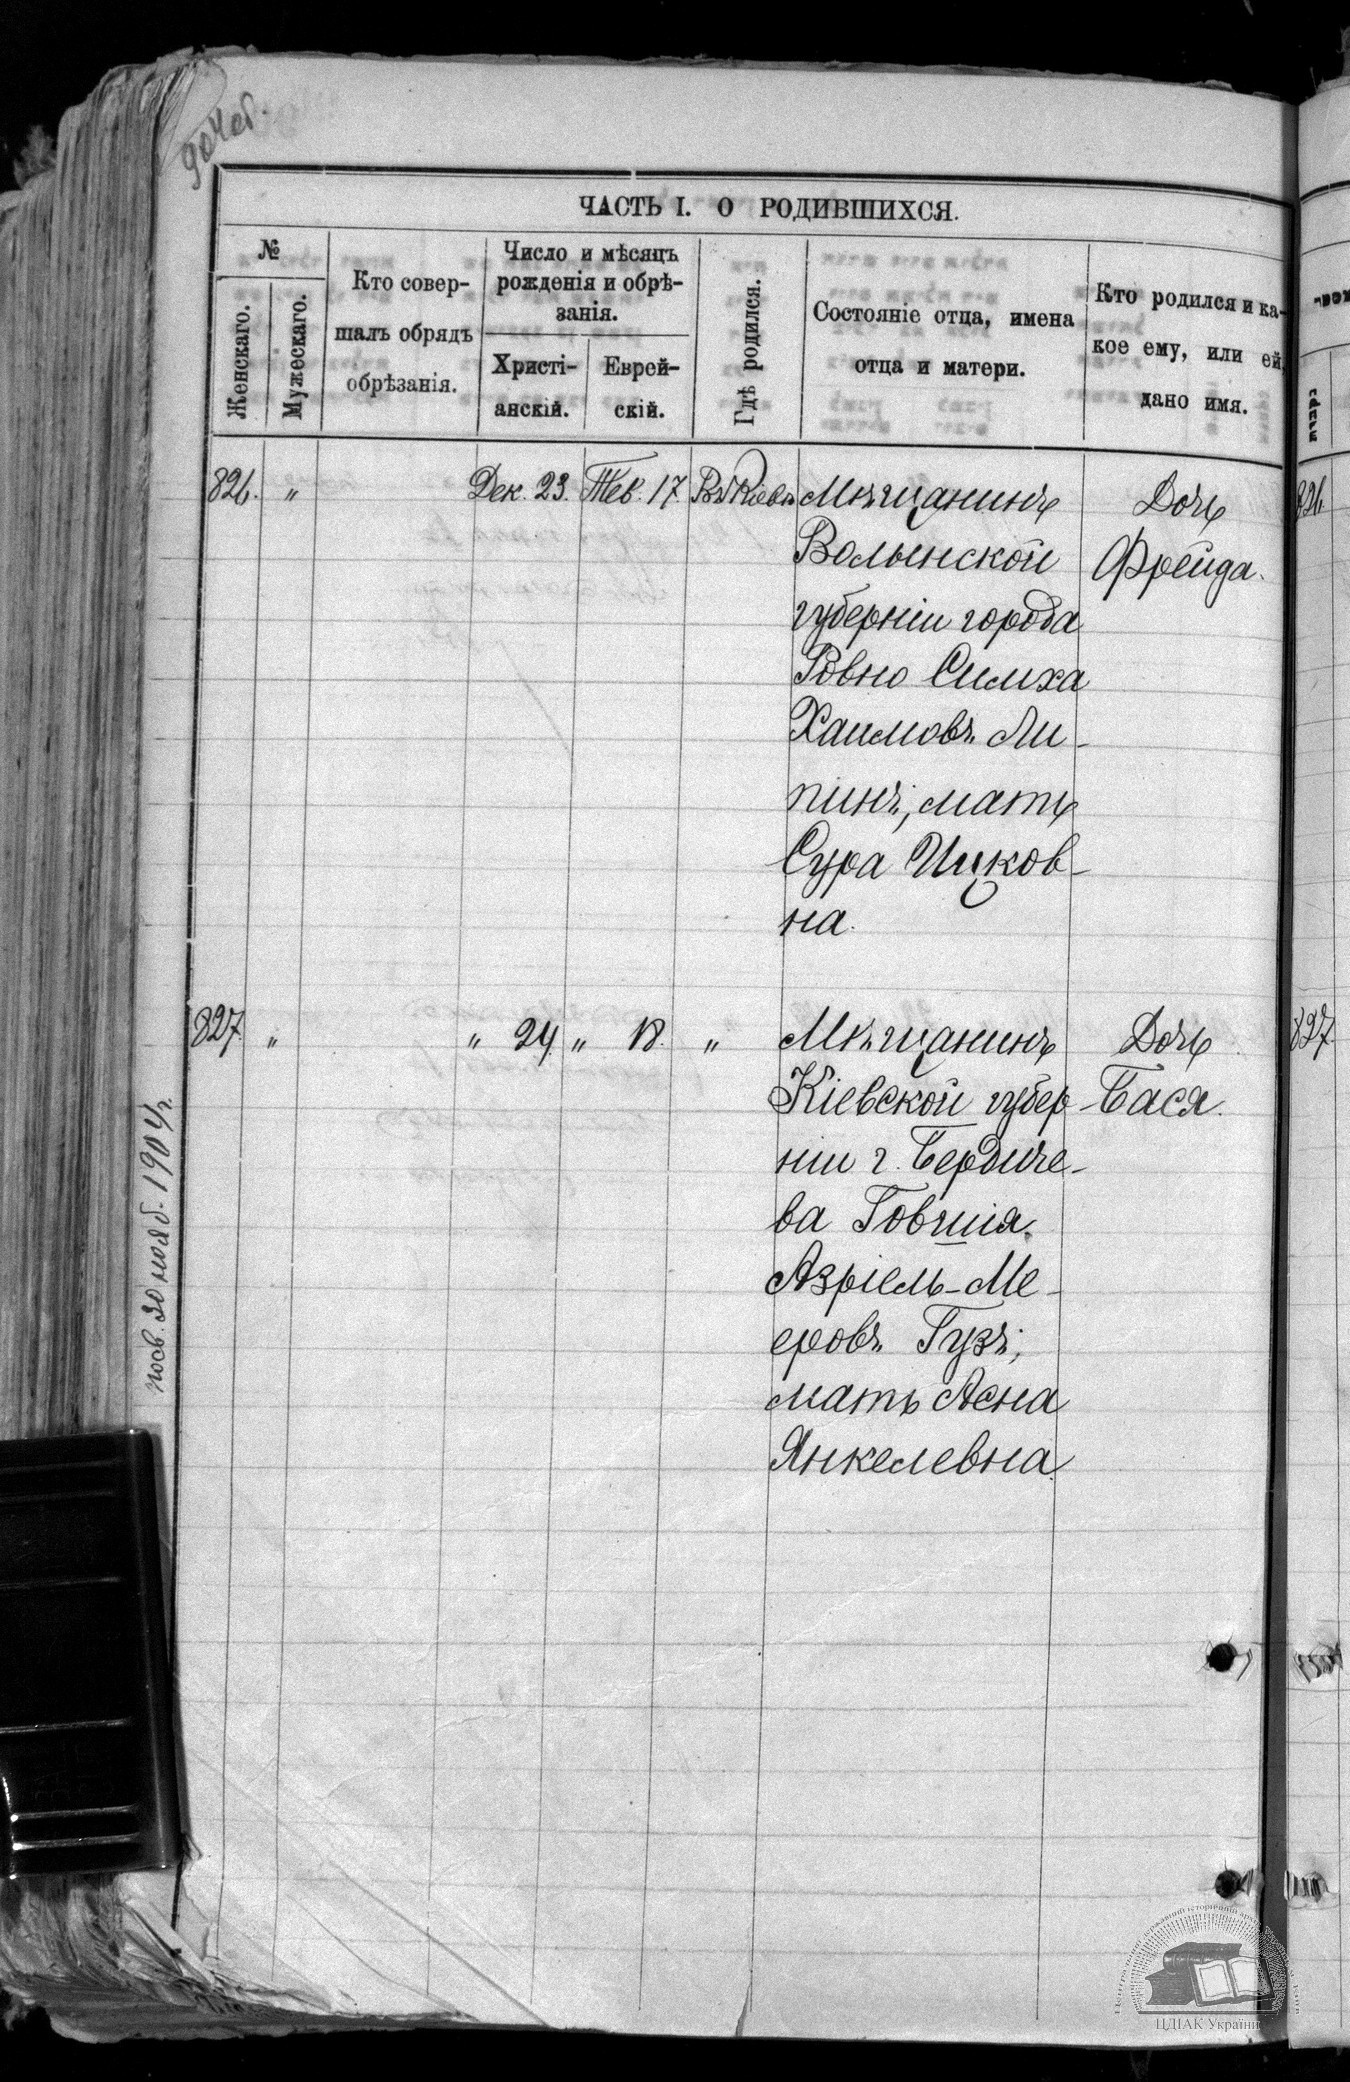 ЧАСТЬ I. О РОДИВШИХСЯ.
№
Женскаго.
Мужескаго.
Кто совер-
шалъ обрядъ
обрѣзанія.
Число и мѣсяцъ
рожденія и обрѣ-
занія.
Христі-
анскій.
Еврей-
скій.
Гдѣ родился.
Состояніе отца, имена
отца и матери.
Кто родился и ка-
кое ему, или ей
дано имя.
826. " Дек. 23. Тев. 17. Въ Кіевѣ Мѣщанинъ Дочь 826.
Волынской Фрейда.
губерніи города
Ровно Симха
Хаимовъ Ли-
пинъ, мать
Сура Ицков-
на.
827. " " 24 " 18. " Мѣщанинъ Дочь 827.
Кіевской губер- Бася.
ніи г. Бердиче-
ва Говшія
Азріель-Ме-
еровъ Гузъ;
мать Асна
Янкелевна
20 нояб. 1904 г.
ЦДІАК України